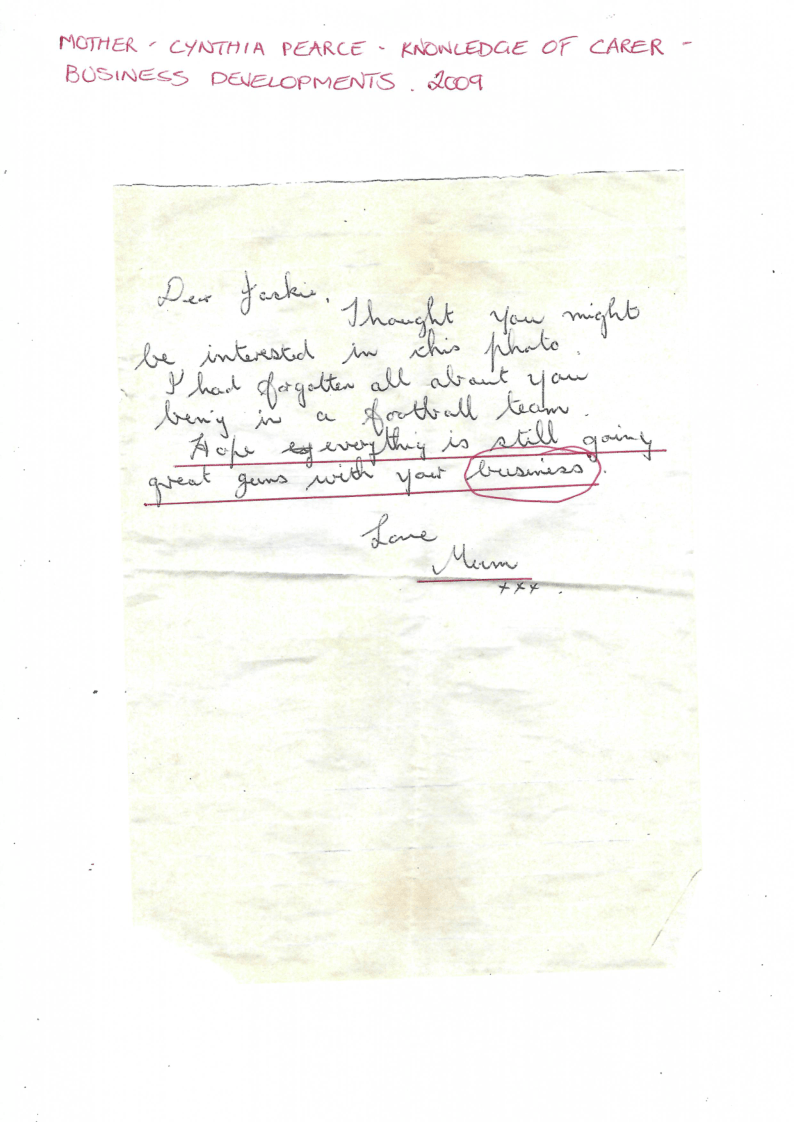 MOTHER - CYNTHIA PEARCE - KNOWLEDGE OF CARER -
BUSINESS DEVELOPMENTS. 2009
Dear Jackie.
Thought you might
be interested in this photo.
I had forgotten all about you
being in a football team.
Hope everything is still going
great guns with your business.
Love
Mum
xxx.